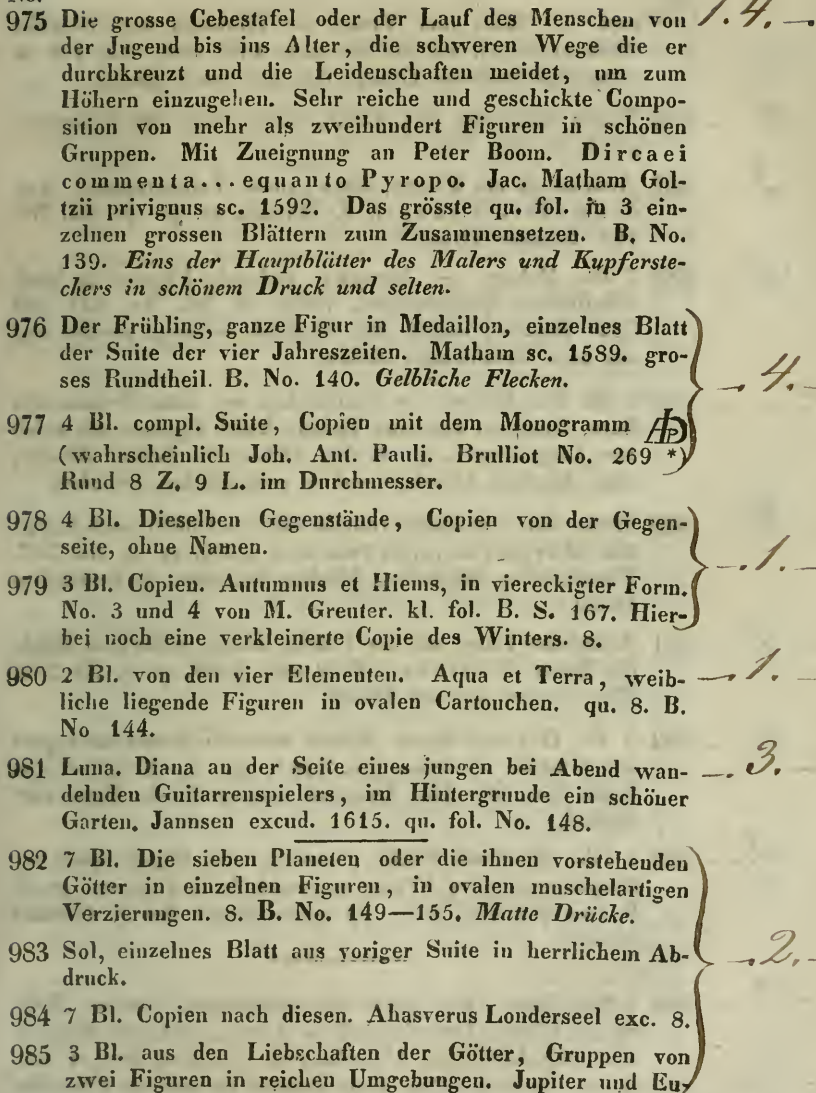 975 Die grosse Cebestafel oder der Lauf des Menschen von 1. 4. —
der Jugend bis ins Alter, die schweren Wege die er
durchkreuzt und die Leidenschaften meidet, um zum
Höhern einzugehen. Sehr reiche und geschickte Compo-
sition von mehr als zweihundert Figuren in schönen
Gruppen. Mit Zueignung an Peter Boom. Dircaei
commenta...equanto Pyropo. Jac. Matham Gol-
tzii privignus sc. 1592. Das grösste qu. fol. in 3 ein-
zelnen grossen Blättern zum Zusammensetzen. B. No.
139. Eins der Hauptblätter des Malers und Kupferste-
chers in schönem Druck und selten.
976 Der Frühling, ganze Figur in Medaillon, einzelnes Blatt
der Suite der vier Jahreszeiten. Matham sc. 1589. gro-
ses Rundtheil. B. No. 140. Gelbliche Flecken. —. 4. —
977 4 Bl. compl. Suite, Copien mit dem Monogramm
(wahrscheinlich Joh. Ant. Pauli. Brulliot No. 269 *)
Rund 8 Z. 9 L. im Durchmesser.
978 4 Bl. Dieselben Gegenstände, Copien von der Gegen-
seite, ohne Namen. —. 1. —
979 3 Bl. Copien. Autumnus et Hiems, in viereckigter Form.
No. 3 und 4 von M. Greuter. kl. fol. B. S. 167. Hier-
bei noch eine verkleinerte Copie des Winters. 8.
980 2 Bl. von den vier Elementen. Aqua et Terra, weib- —. 1. —
liche liegende Figuren in ovalen Cartouchen. qu. 8. B.
No 144.
981 Luna. Diana an der Seite eines jungen bei Abend wan- —. 3.
delnden Guitarrenspielers, im Hintergrunde ein schöner
Garten. Jannsen excud. 1615. qu. fol. No. 148.
982 7 Bl. Die sieben Planeten oder die ihnen vorstehenden
Götter in einzelnen Figuren, in ovalen muschelartigen
Verzierungen. 8. B. No. 149—155. Matte Drücke.
983 Sol, einzelnes Blatt aus voriger Suite in herrlichem Ab- —. 2. —
druck.
984 7 Bl. Copien nach diesen. Ahasverus Londerseel exc. 8.
985 3 Bl. aus den Liebschaften der Götter, Gruppen von
zwei Figuren in reichen Umgebungen. Jupiter und Eu-